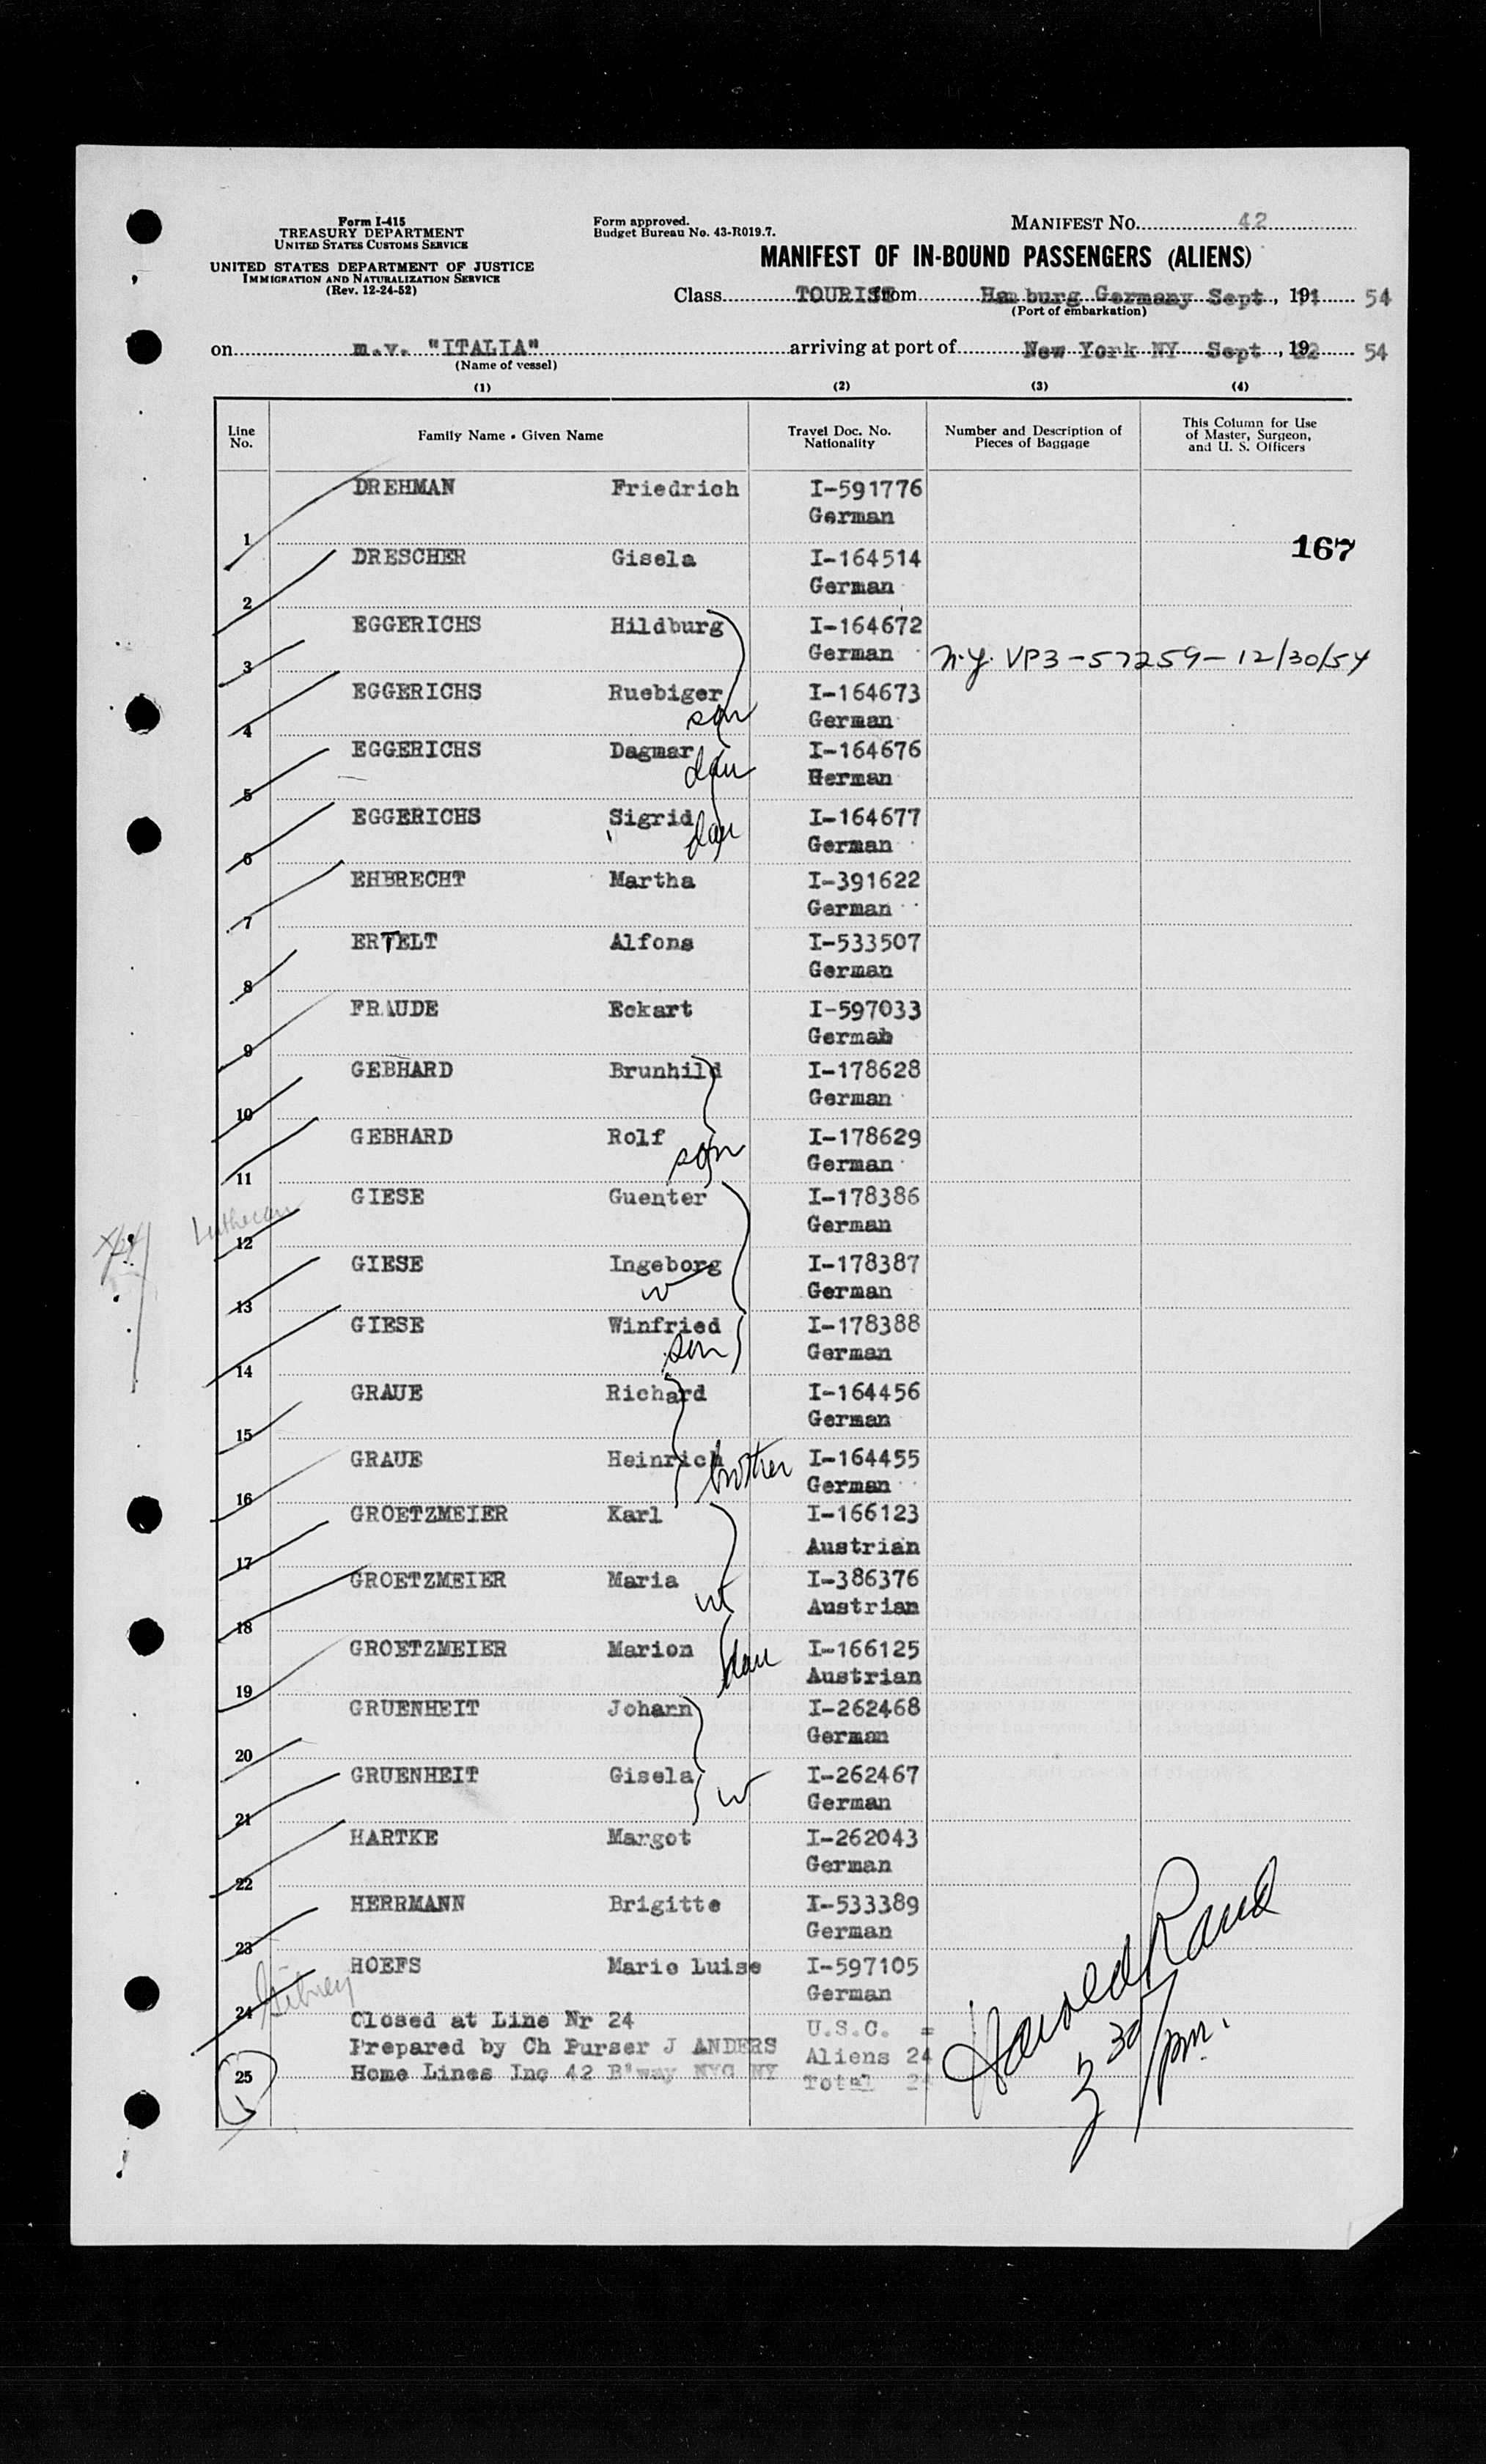 Form I-415
TREASURY DEPARTMENT
UNITED STATES CUSTOMS SERVICE
UNITED STATES DEPARTMENT OF JUSTICE
IMMIGRATION AND NATURALIZATION SERVICE
(Rev. 12-24-52)
Form approved.
Budget Bureau No. 43-R019.7.
MANIFEST NO. 42
MANIFEST OF IN-BOUND PASSENGERS (ALIENS)
Class TOURIST from Hamburg Germany Sept , 19 11 54
(Port of embarkation)
on m.v. "ITALIA" arriving at port of New York NY Sept , 19 22 54
(Name of vessel)
(1) (2) (3) (4)
Line No. Family Name - Given Name Travel Doc. No. Nationality Number and Description of Pieces of Baggage This Column for Use of Master, Surgeon, and U. S. Officers
167
1 DREHMAN Friedrich I-591776 German
2 DRESCHER Gisela I-164514 German
3 EGGERICHS Hildburg I-164672 German N.Y. VP3-57259-12/30/54
4 EGGERICHS Ruebiger son I-164673 German
5 EGGERICHS Dagmar dau I-164676 German
6 EGGERICHS Sigrid dau I-164677 German
7 EHBRECHT Martha I-391622 German
8 ERTELT Alfons I-533507 German
9 FRAUDE Eckart I-597033 Germab
10 GEBHARD Brunhild I-178628 German
11 GEBHARD Rolf son I-178629 German
Lutheran
12 GIESE Guenter I-178386 German
13 GIESE Ingeborg w I-178387 German
14 GIESE Winfried son I-178388 German
15 GRAUE Richard I-164456 German
16 GRAUE Heinrich brother I-164455 German
17 GROETZMEIER Karl I-166123 Austrian
18 GROETZMEIER Maria w I-386376 Austrian
19 GROETZMEIER Marion dau I-166125 Austrian
20 GRUENHEIT Johann I-262468 German
21 GRUENHEIT Gisela w I-262467 German
22 HARTKE Margot I-262043 German
23 HERRMANN Brigitte I-533389 German
24 HOEFS Marie Luise I-597105 German
Closed at Line Nr 24 U.S.C. =
Prepared by Ch Purser J ANDERS Aliens 24
25 Home Lines Inc 42 B'way NYC NY Total 24
Harold Rand
3 30/pm.